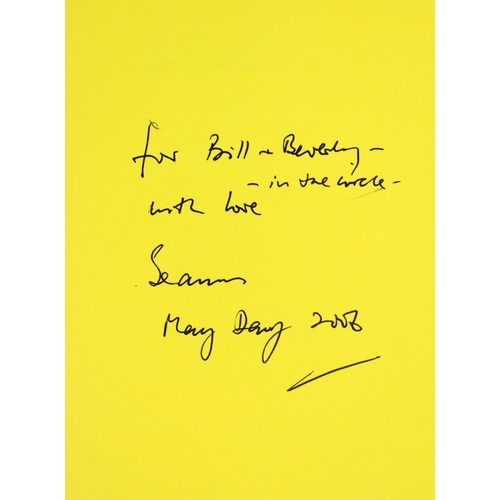 for Bill + Beverly –
– in the circle –
with love
Seamus
May Day 2006